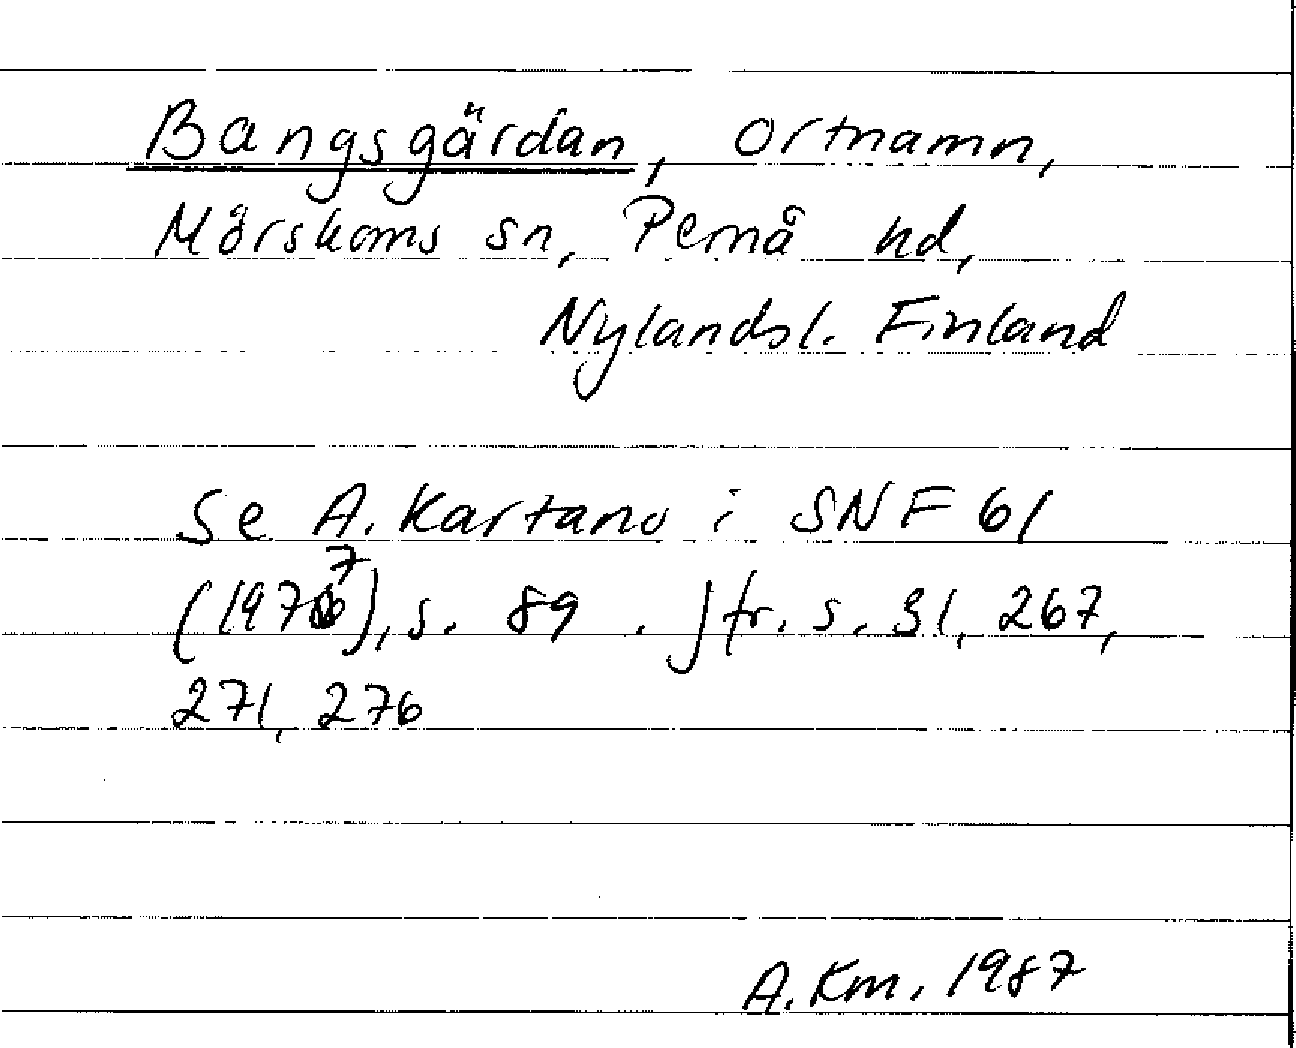 Bangsgärdan, ortnamn,
Mörskoms sn, Pernå hd,
Nylandsl. Finland
Se A. Kartano i SNF 61
(1977), s. 89. Jfr. s. 31, 267,
271, 276
A. Km. 1987